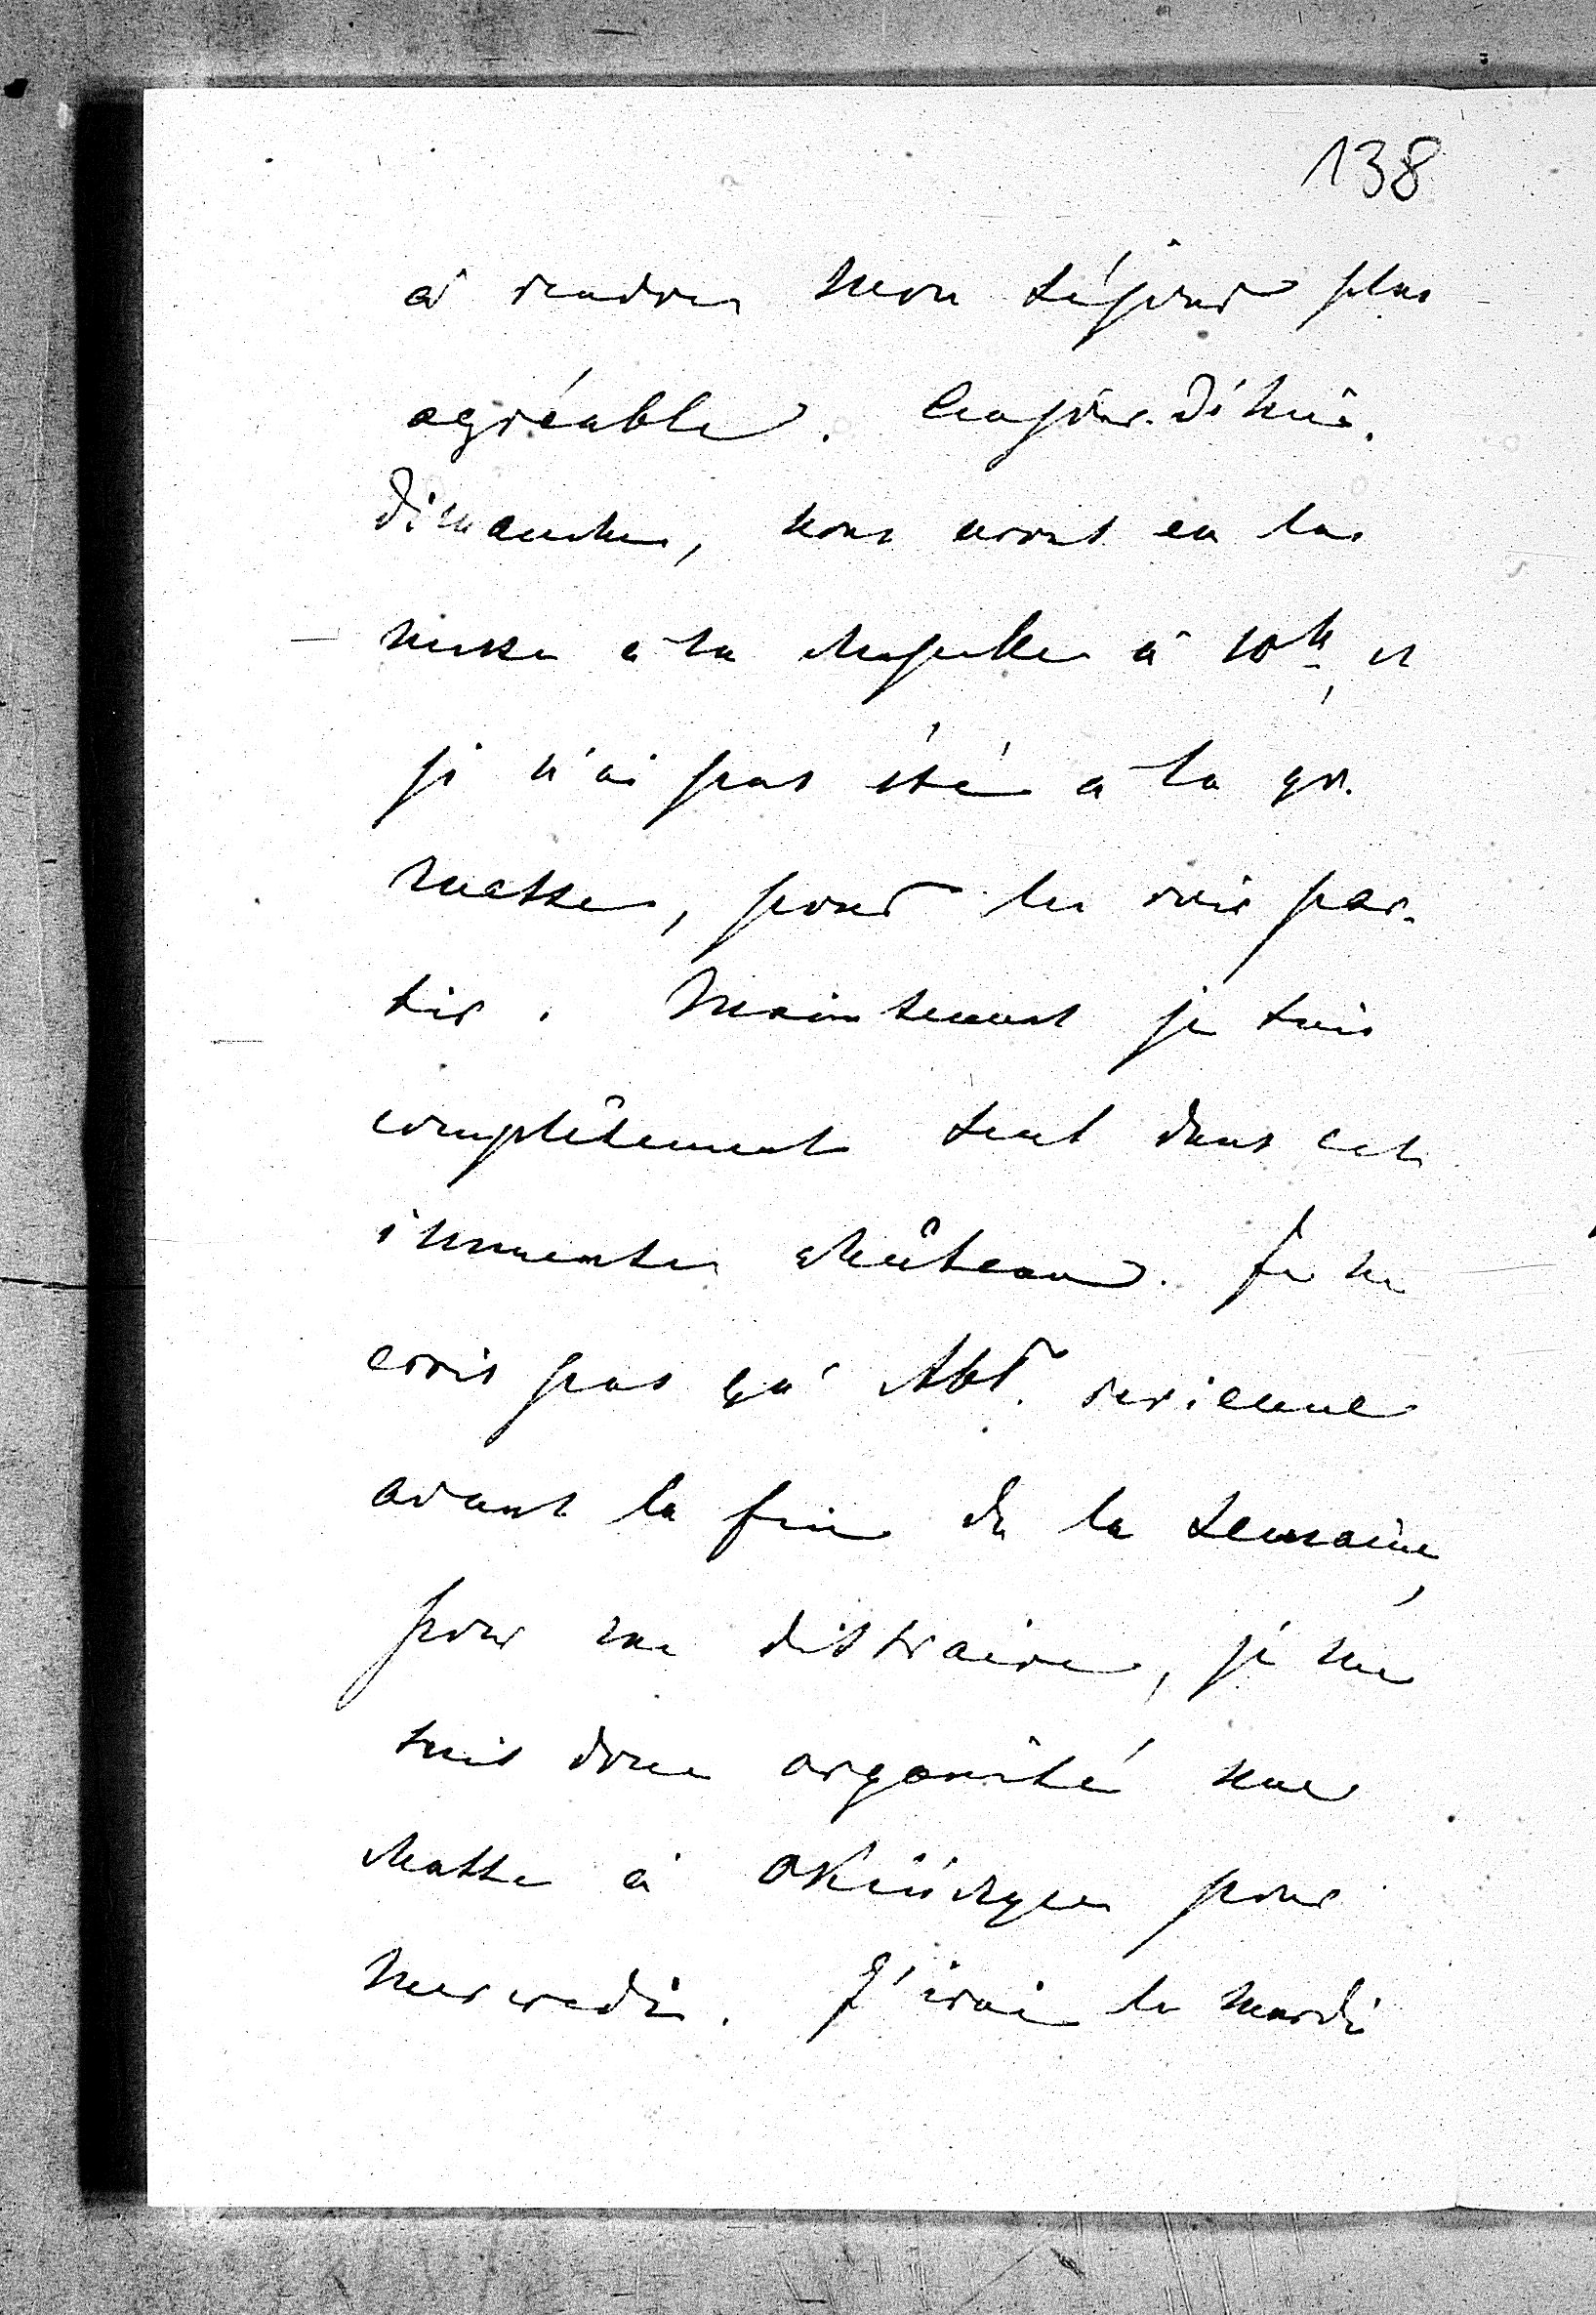 138
à rendre mon séjour plus
agréable. Aujour-d'hui.
Dimanche, nous avons eu la
messe à la chapelle à 10h, et
je n'ai pas été à la gr.
messe, pour les voir par-
tir. Maintenant je suis
complètement seul dans cet
immense château. Je ne
crois pas qu' Abt. revienne
avant la fin de la semaine,
pour me distraire, je me
suis donc organisé une
chasse à pour
mercredi. J'irai le mardi